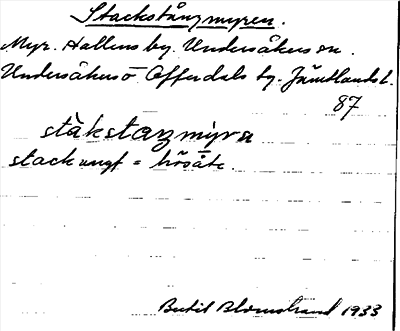 Stackstångmyren.
Myr. Hallens by. Undersåkers sn.
Undersåkers o Offerdals tg. Jämtlands l.
87
stàkstaŋmỳra
stack ungf = hösåte.
Bertil Blomstrand 1933